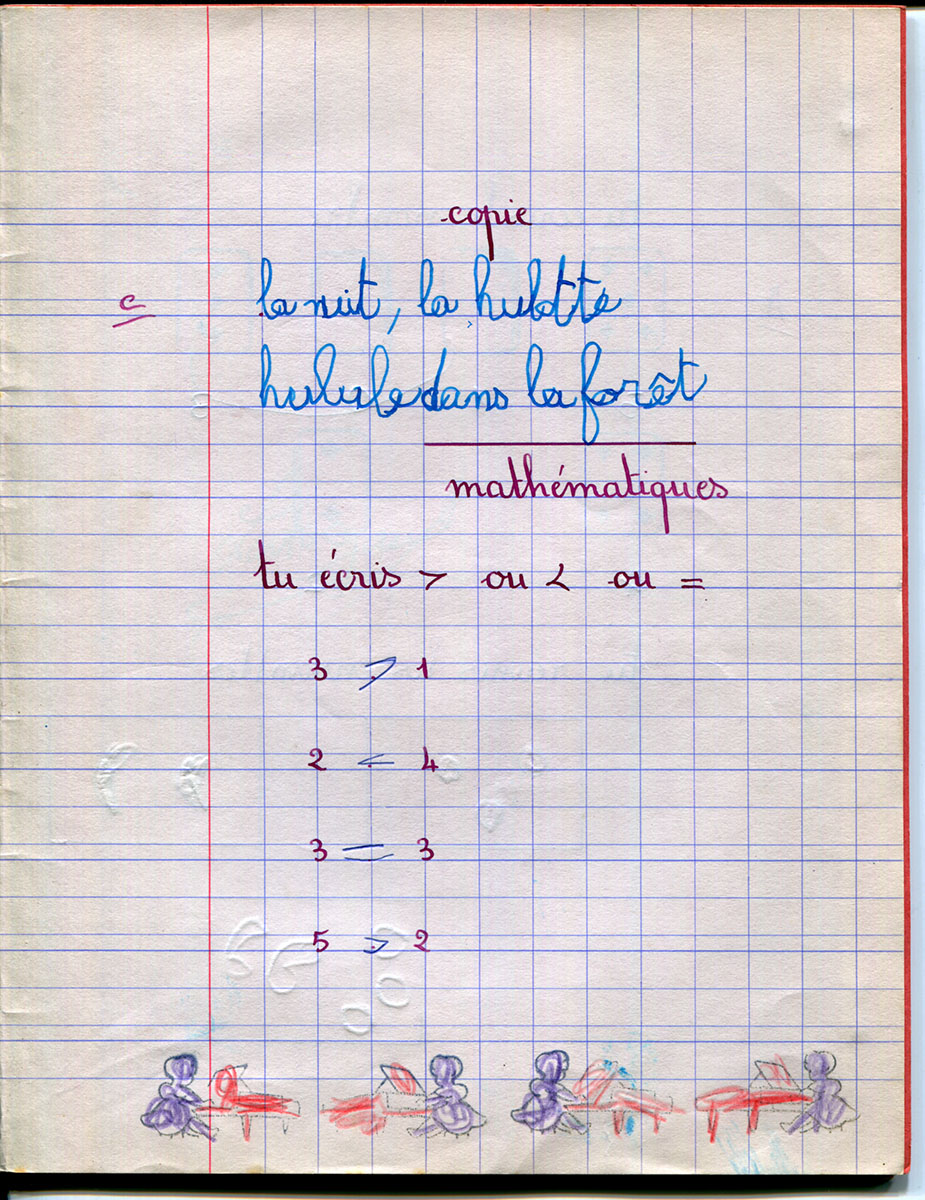 copie
c
la nuit, la hulotte
hulule dans la forêt
mathématiques
tu écris > ou < ou =
3 > 1
2 < 4
3 = 3
5 > 2